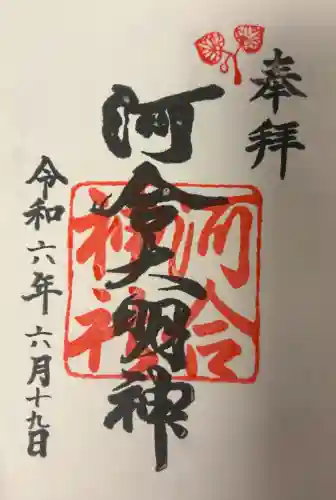 奉拝
河合大明神
河合
神社
令和六年六月十九日